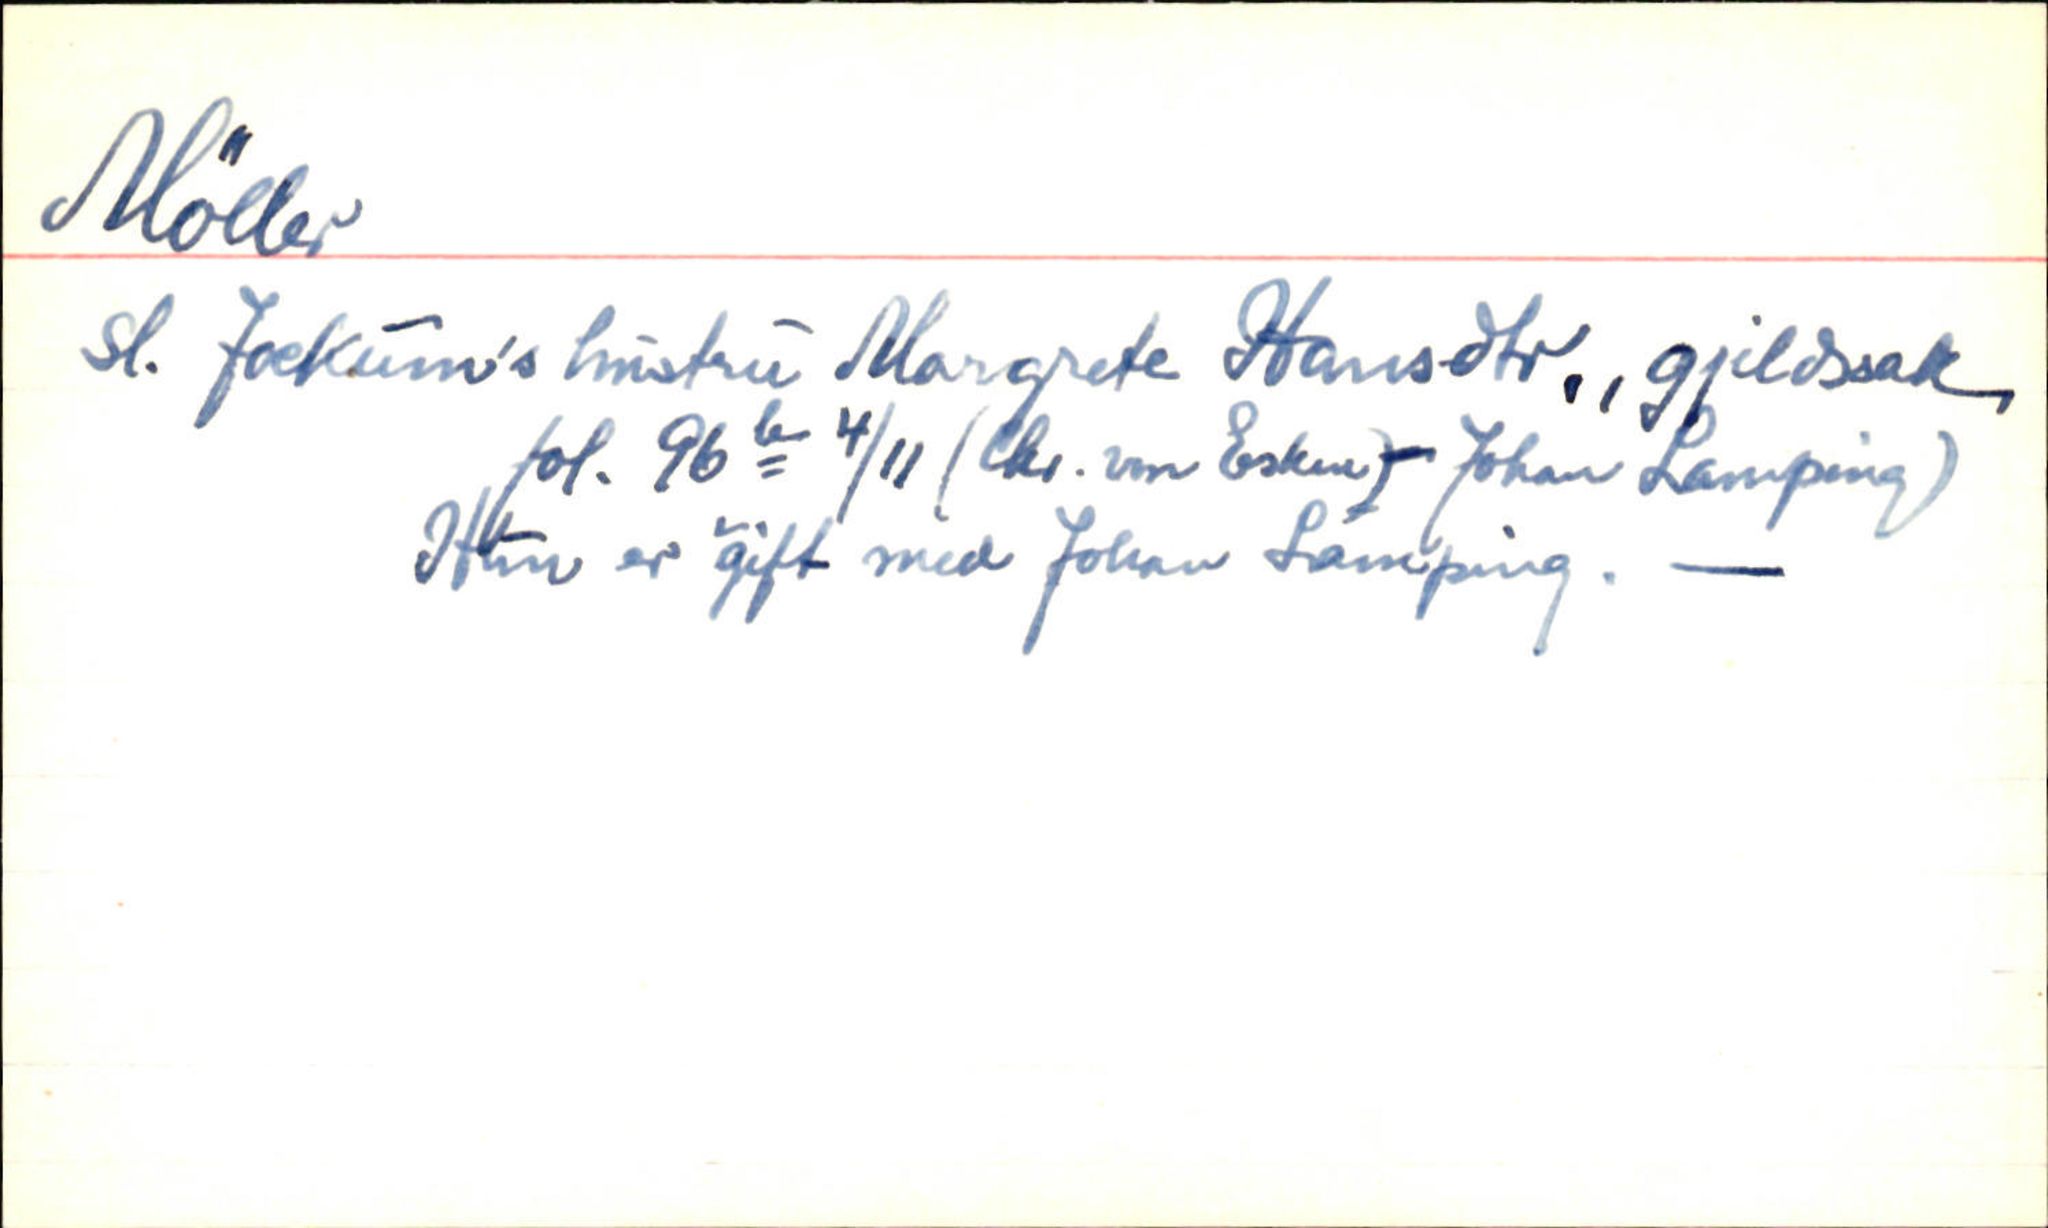 Möller
Sl. Jockum's hustru Margrete Hansdtr., gjeldssak,
fol. 96 b 4/11 (Chr. von Esken - Johan Lamping)
Hun er gift med Johan Lamping. —